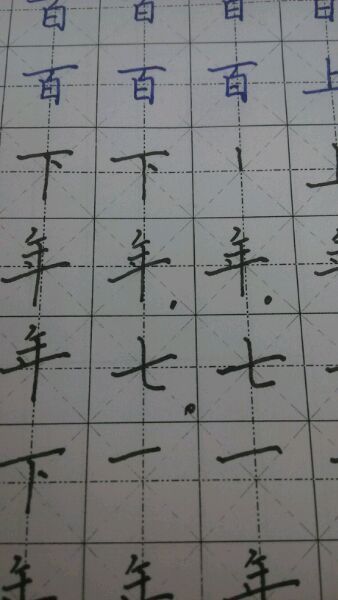 百 百 百 百
百 百 百 上
下 下 丨 上
年 年. 年. 年
年 七. 七
下 一 一
年 年 年